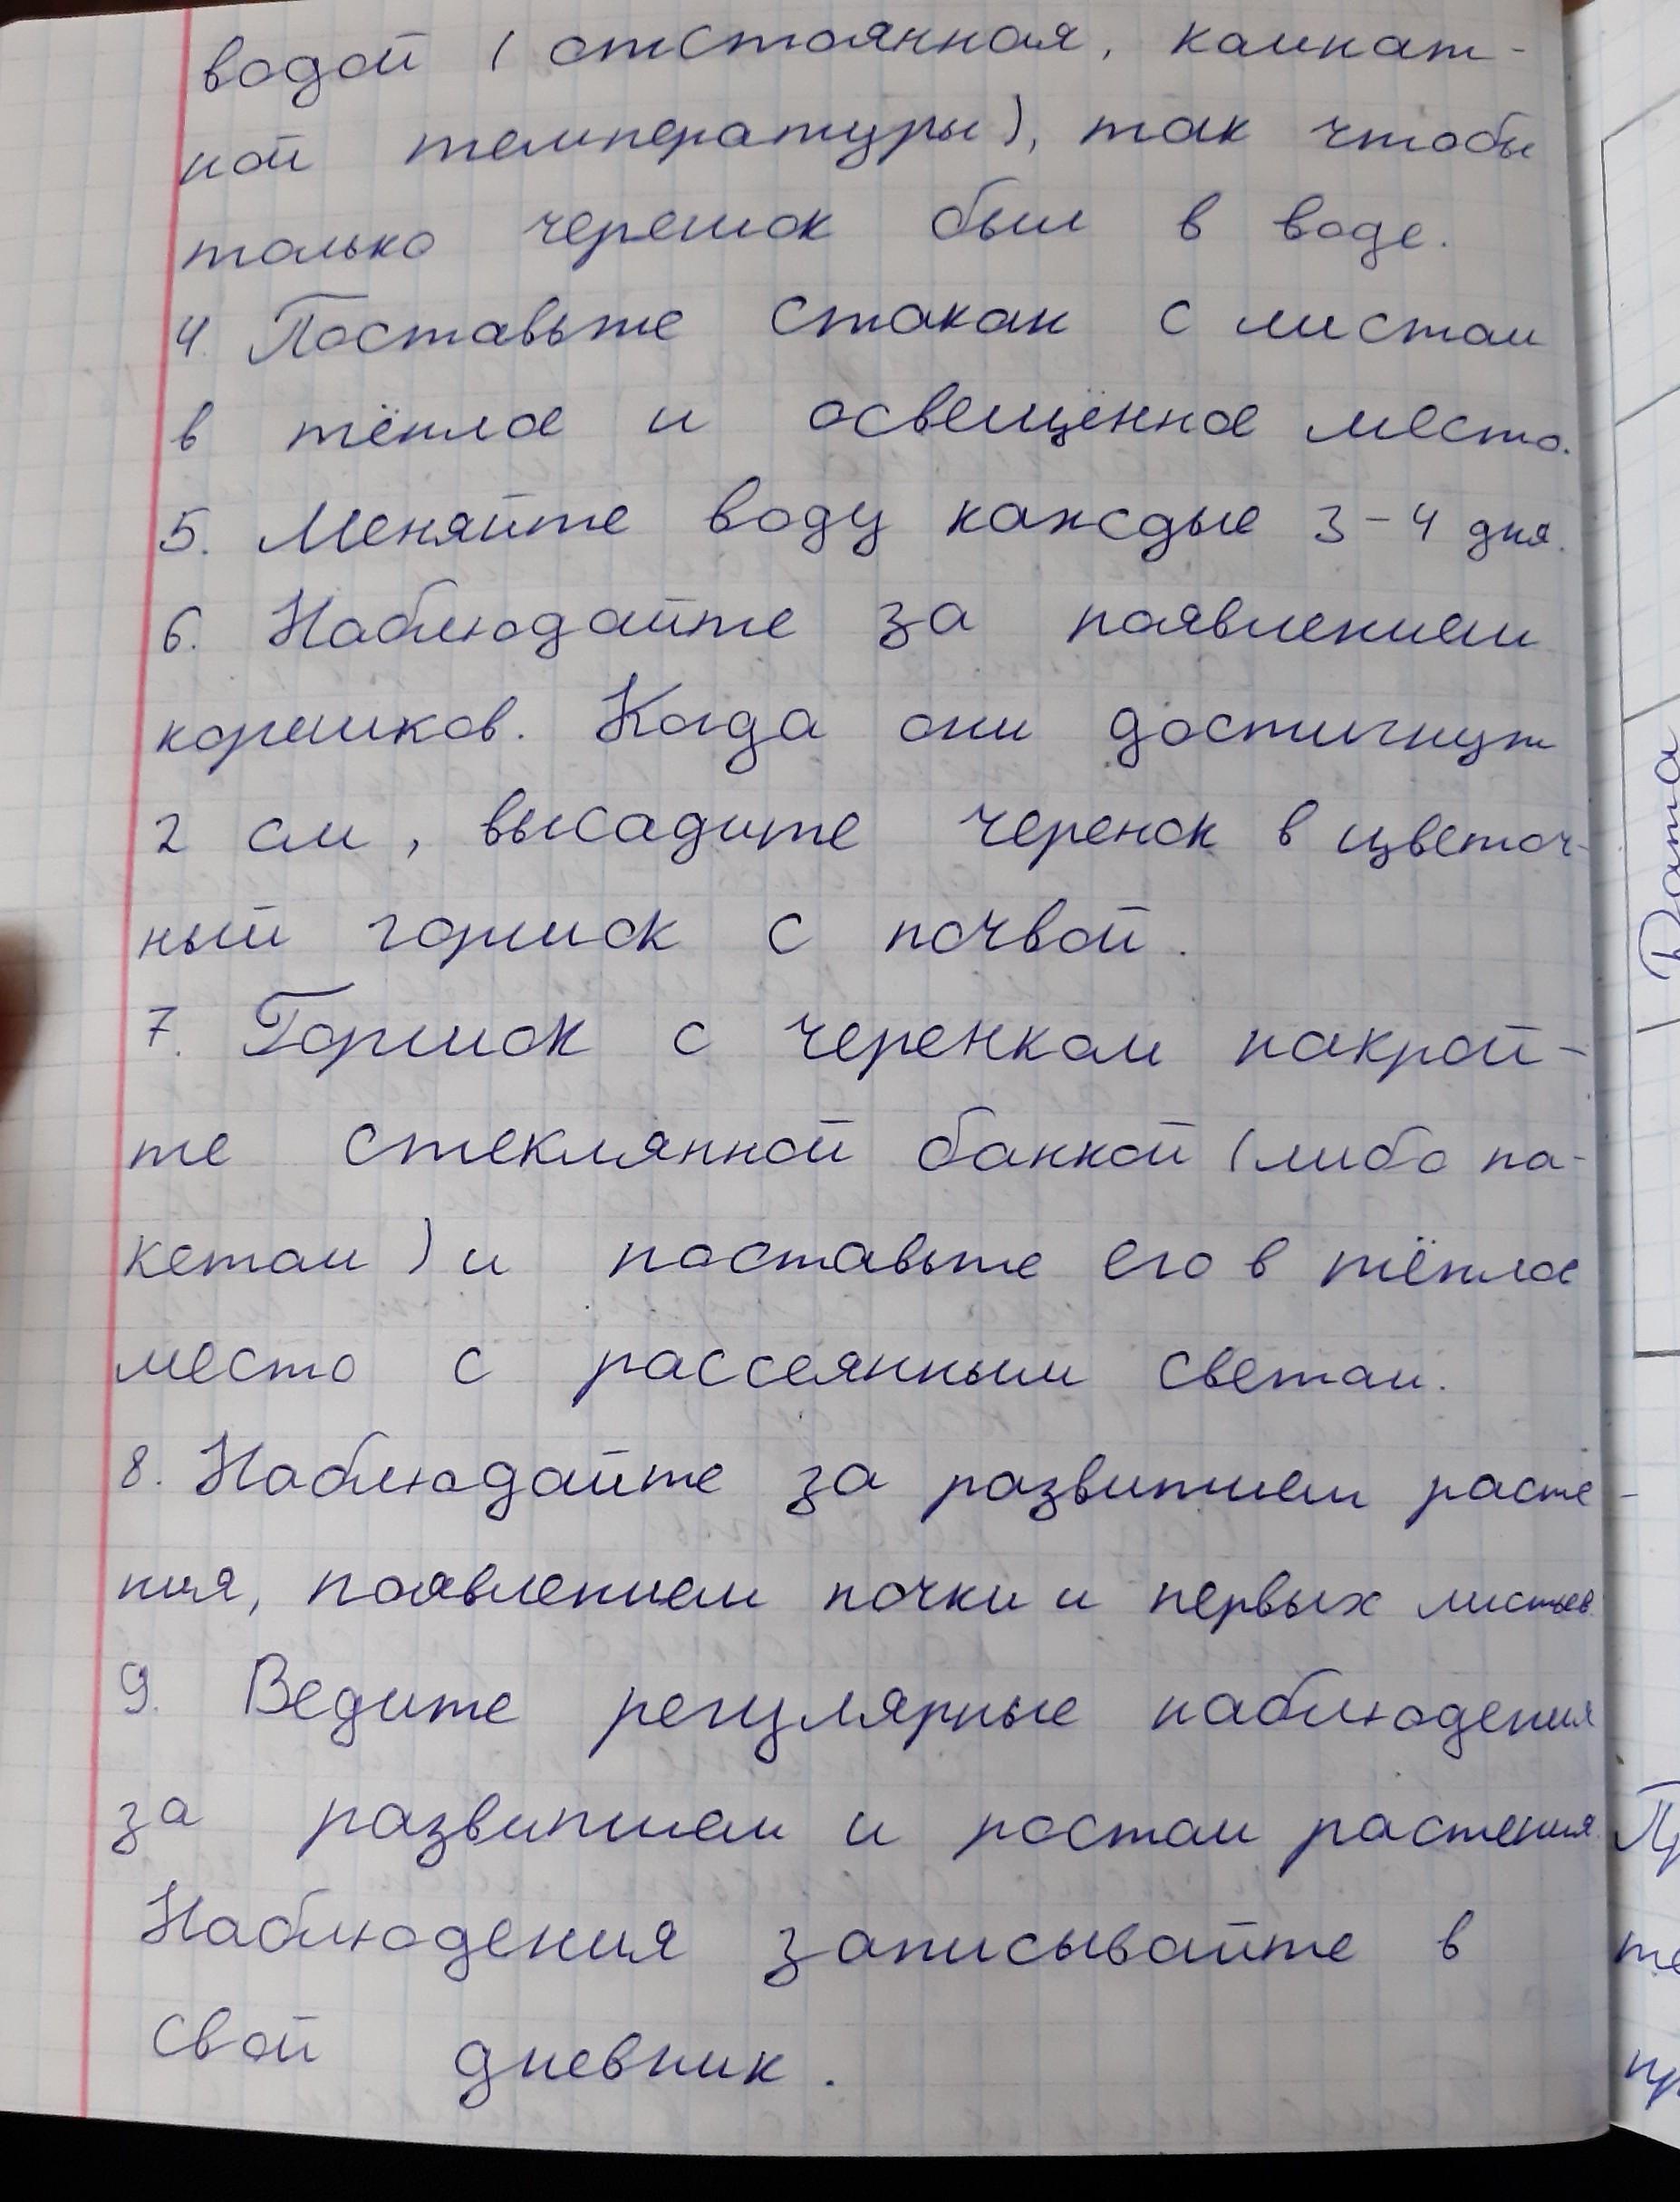 водой (отстоянная, комнат-
ной температуры), так чтобы
только черешок был в воде.
4. Поставьте стакан с листом
в тёплое и освещённое место.
5. Меняйте воду каждые 3-4 дня.
6. Наблюдайте за появлением
корешков. Когда они достигнут
2 см, высадите черенок в цветоч-
ный горшок с почвой.
7. Горшок с черенком накрой-
те стеклянной банкой (либо па-
кетом) и поставьте его в тёплое
место с рассеянным светом.
8. Наблюдайте за развитием расте-
ния, появлением почки и первых листьев
9. Ведите регулярные наблюдения
за развитием и ростом растения.
Наблюдения записывайте в
свой дневник.
Дата